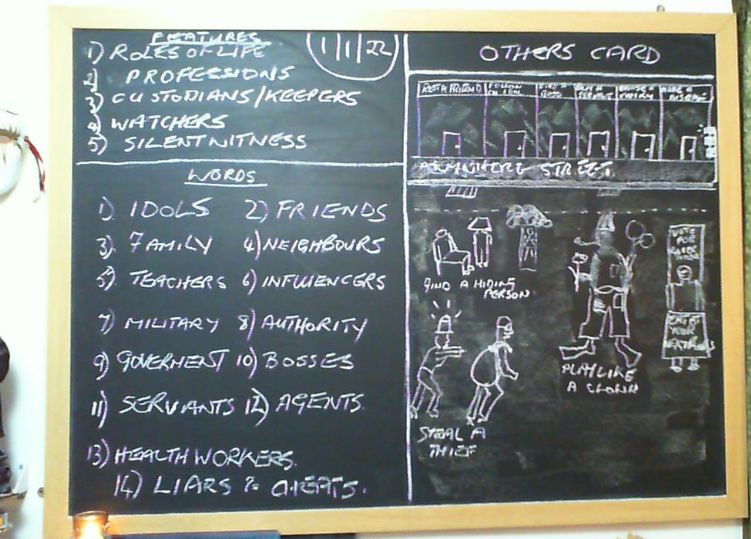 FEATURES
1) ROLES OF LIFE
2) PROFESSIONS
3) CUSTODIANS/KEEPERS
4) WATCHERS
5) SILENT WITNESS
1/1/22
WORDS
1) IDOLS 2) FRIENDS
3) FAMILY 4) NEIGHBOURS
5) TEACHERS 6) INFLUENCERS
7) MILITARY 8) AUTHORITY
9) GOVERMENT 10) BOSSES
11) SERVANTS 12) AGENTS.
13) HEALTH WORKERS.
14) LIARS & CHEATS.
OTHERS CARD
RENT A FRIEND
FOLLOW
AN IDOL
STREET
FIND A HIDING
PERSON
PLAY LIKE
A CLOWN
STEAL A
THIEF
VOTE
FOR
YOUR